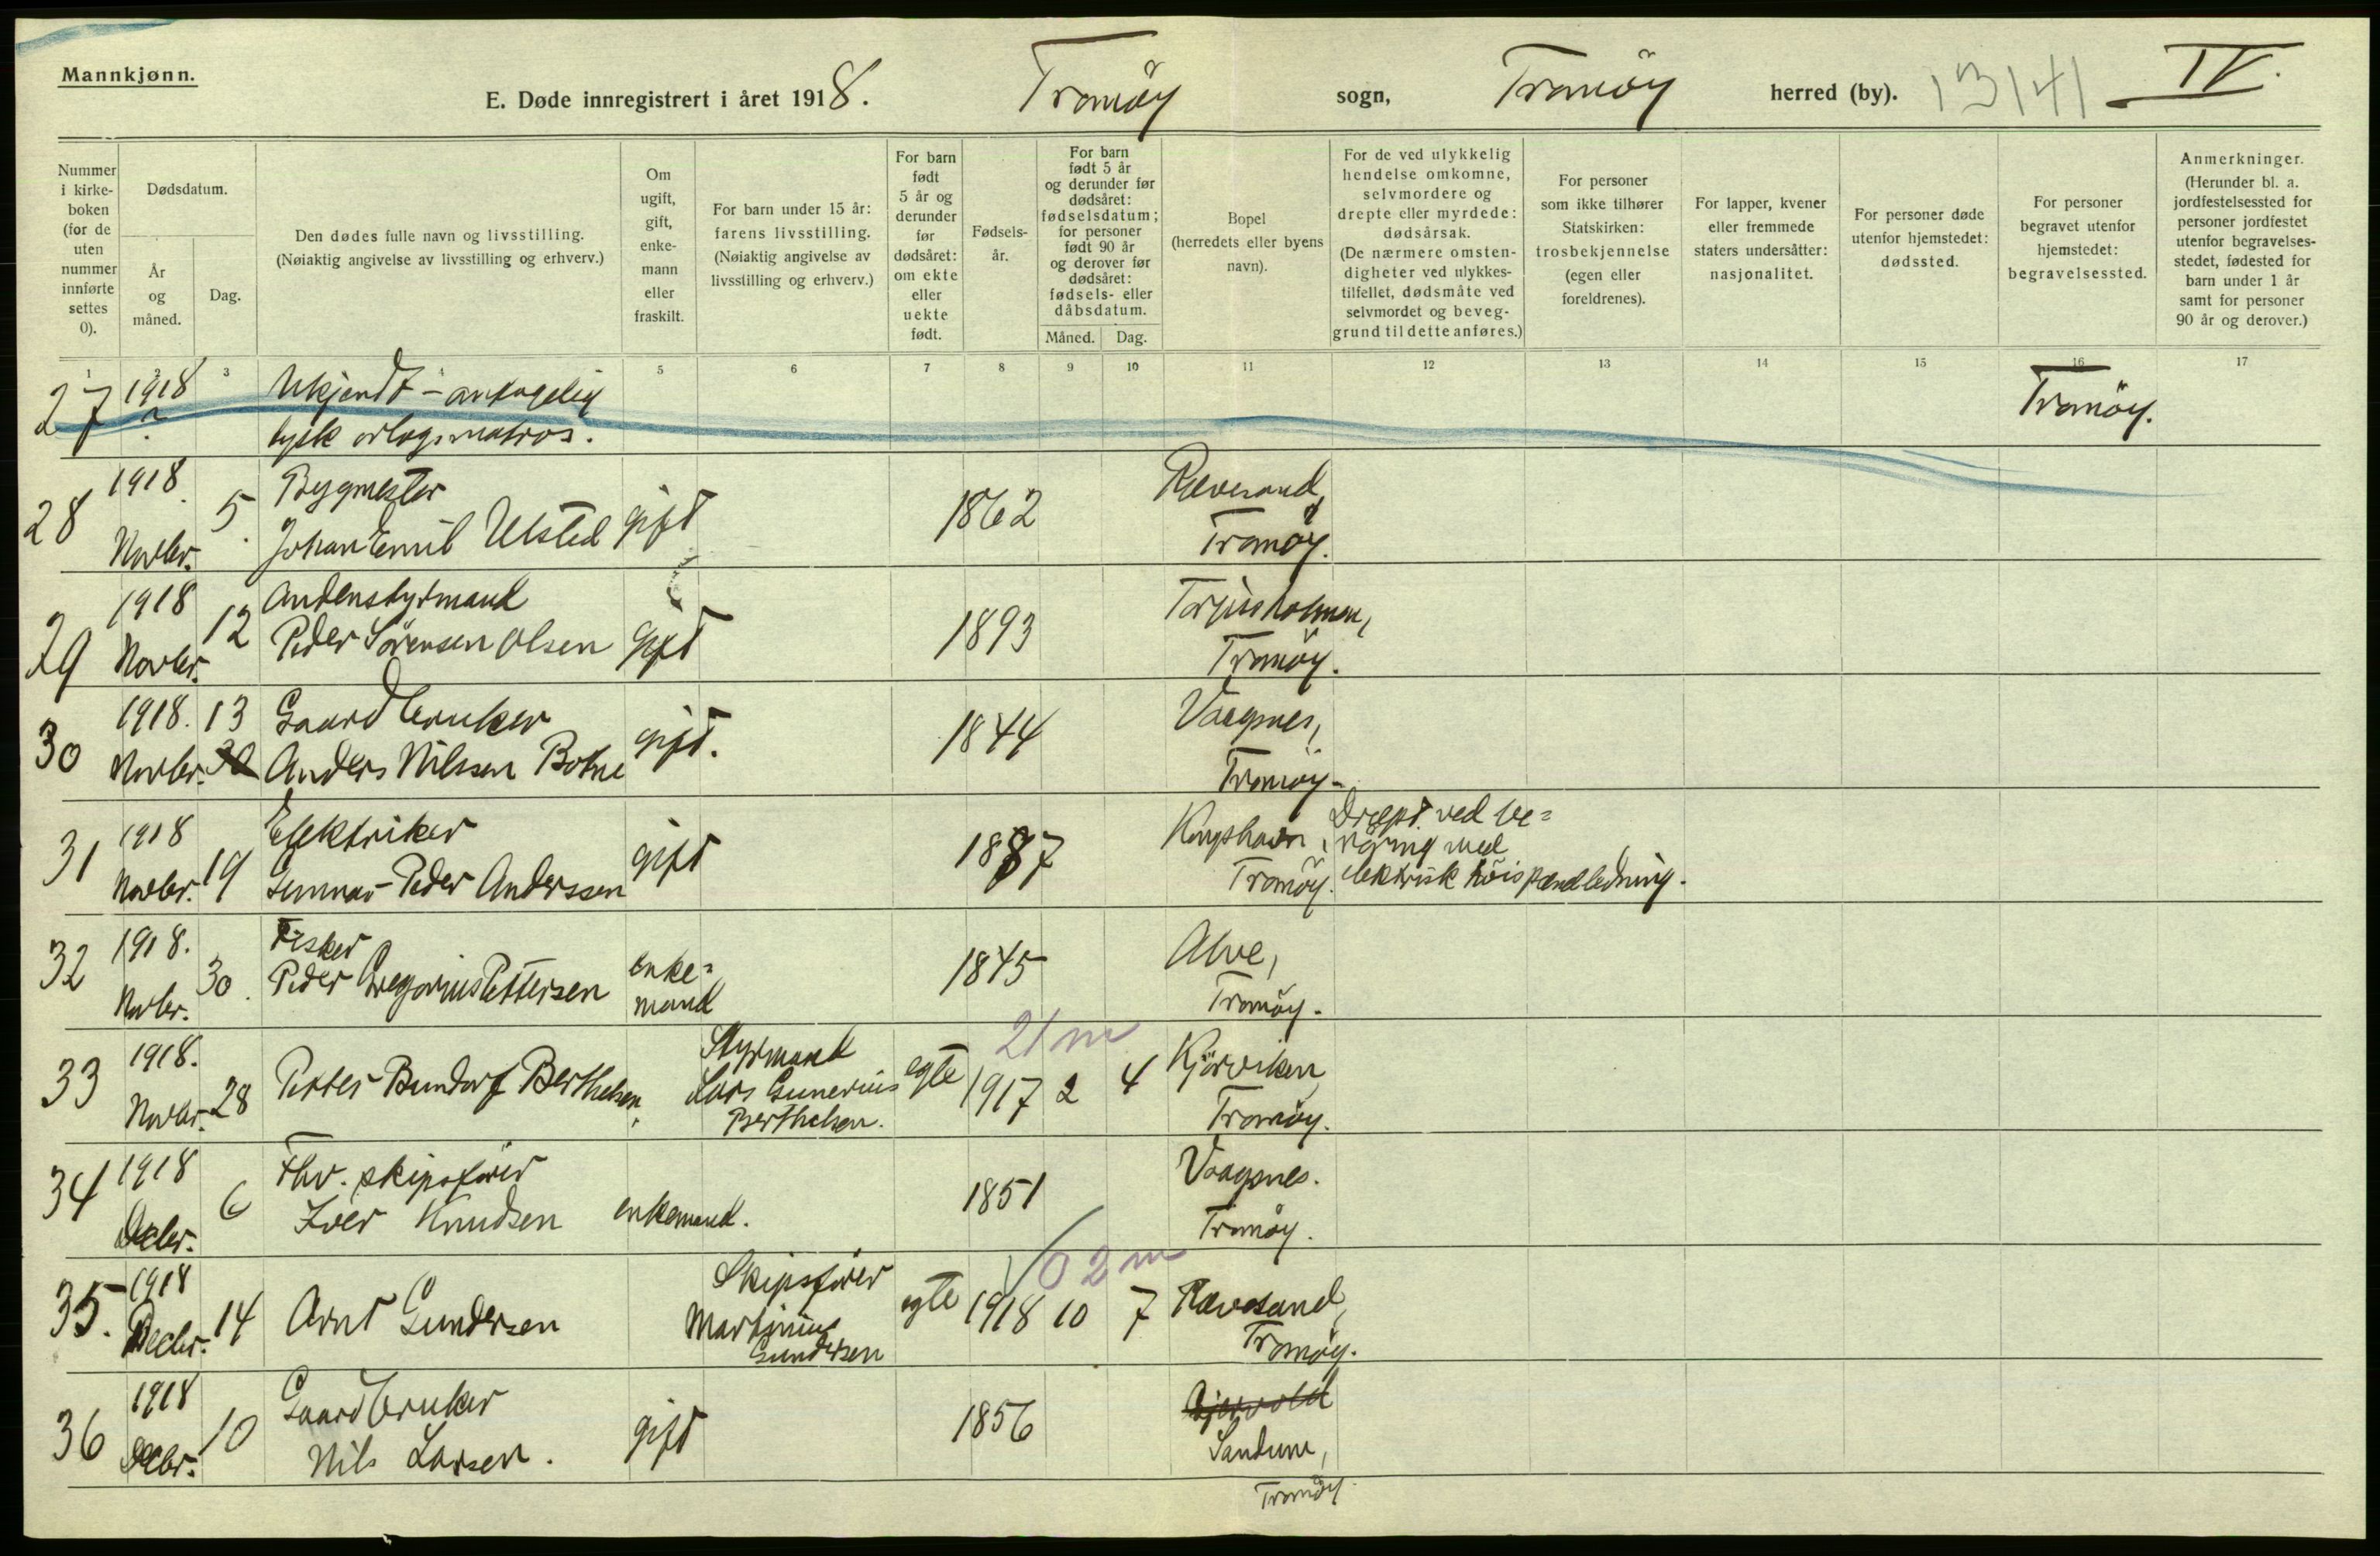 Mannkjønn.
E. Døde innregistrert i året 1918. Tromöy sogn, Tromöy herred (by). 13141 IV.
Nummer i kirke- boken (for de uten nummer innførte settes 0).
Dødsdatum.
År og måned.
Dag.
Den dødes fulle navn og livsstilling.
(Nøiaktig angivelse av livsstilling og erhverv.)
Om ugift, gift, enke- mann eller fraskilt.
For barn under 15 år: farens livsstilling. (Nøiaktig angivelse av livsstilling og erhverv.)
For barn født 5 år og derunder før dødsåret: om ekte eller uekte født.
Fødsels- år.
For barn født 5 år og derunder før dødsåret: fødselsdatum; for personer født 90 år og derover før dødsåret: fødsels- eller dåbsdatum.
Måned. Dag.
Bopel (herredets eller byens navn).
For de ved ulykkelig hendelse omkomne, selvmordere og drepte eller myrdede: dødsårsak. (De nærmere omsten- digheter ved ulykkes- tilfellet, dødsmåte ved selvmordet og beveg- grund til dette anføres.)
For personer som ikke tilhører Statskirken: trosbekjennelse (egen eller foreldrenes).
For lapper, kvener eller fremmede staters undersåtter: nasjonalitet.
For personer døde utenfor hjemstedet: dødssted.
For personer begravet utenfor hjemstedet: begravelsessted.
Anmerkninger. (Herunder bl. a. jordfestelsessted for personer jordfestet utenfor begravelses- stedet, fødested for barn under 1 år samt for personer 90 år og derover.)
1 2 3 4 5 6 7 8 9 10 11 12 13 14 15 16 17
27 1918 Ukjendt - antagelig Tromöy.
? tysk orlogsmatros.
28 1918 5. Bygmester gift 1862 Revesand,
Novbr. Johan Emil Ulsted Tromöy.
29 1918 12 Andenstyrmand gift 1893 Torjusholmen,
Novbr. Peder Sörensen Olsen Tromöy.
30 1918. 13 Gaardbruker gift. 1844 Vaagsnes,
Novbr. 30 Anders Nilssen Botne Tromöy.
31 1918 19 Elektriker gift 1887 Kongshavn, Dræpt ved be=
Novbr. Gunnar Peder Anderssen Tromöy. röring med
elektrisk höispændledning.
32 1918. 30. Fisker enke= 1845 Alve,
Novbr. Peder Gregorius Pettersen mand Tromöy.
21 m
33 1918. 28 Petter Bundorf Berthelsen. Styrmand egte 1917 2 4 Kjörviken
Novbr. Lars Gunerius Tromöy.
Berthelsen.
34 1918 6 Fhv. skipsförer enkemand. 1851 Vaagsnes.
Decbr. Iver Knudsen Tromöy.
0 2 m
35. 1918 14 Arnt Gundersen Skipsförer egte 1918 10 7 Revesand,
Decbr. Martinius Tromöy.
Gundersen
36 1918 10 Gaardbruker gift 1856 Gjervold
Decbr. Nils Larsen. Sandum,
Tromöy